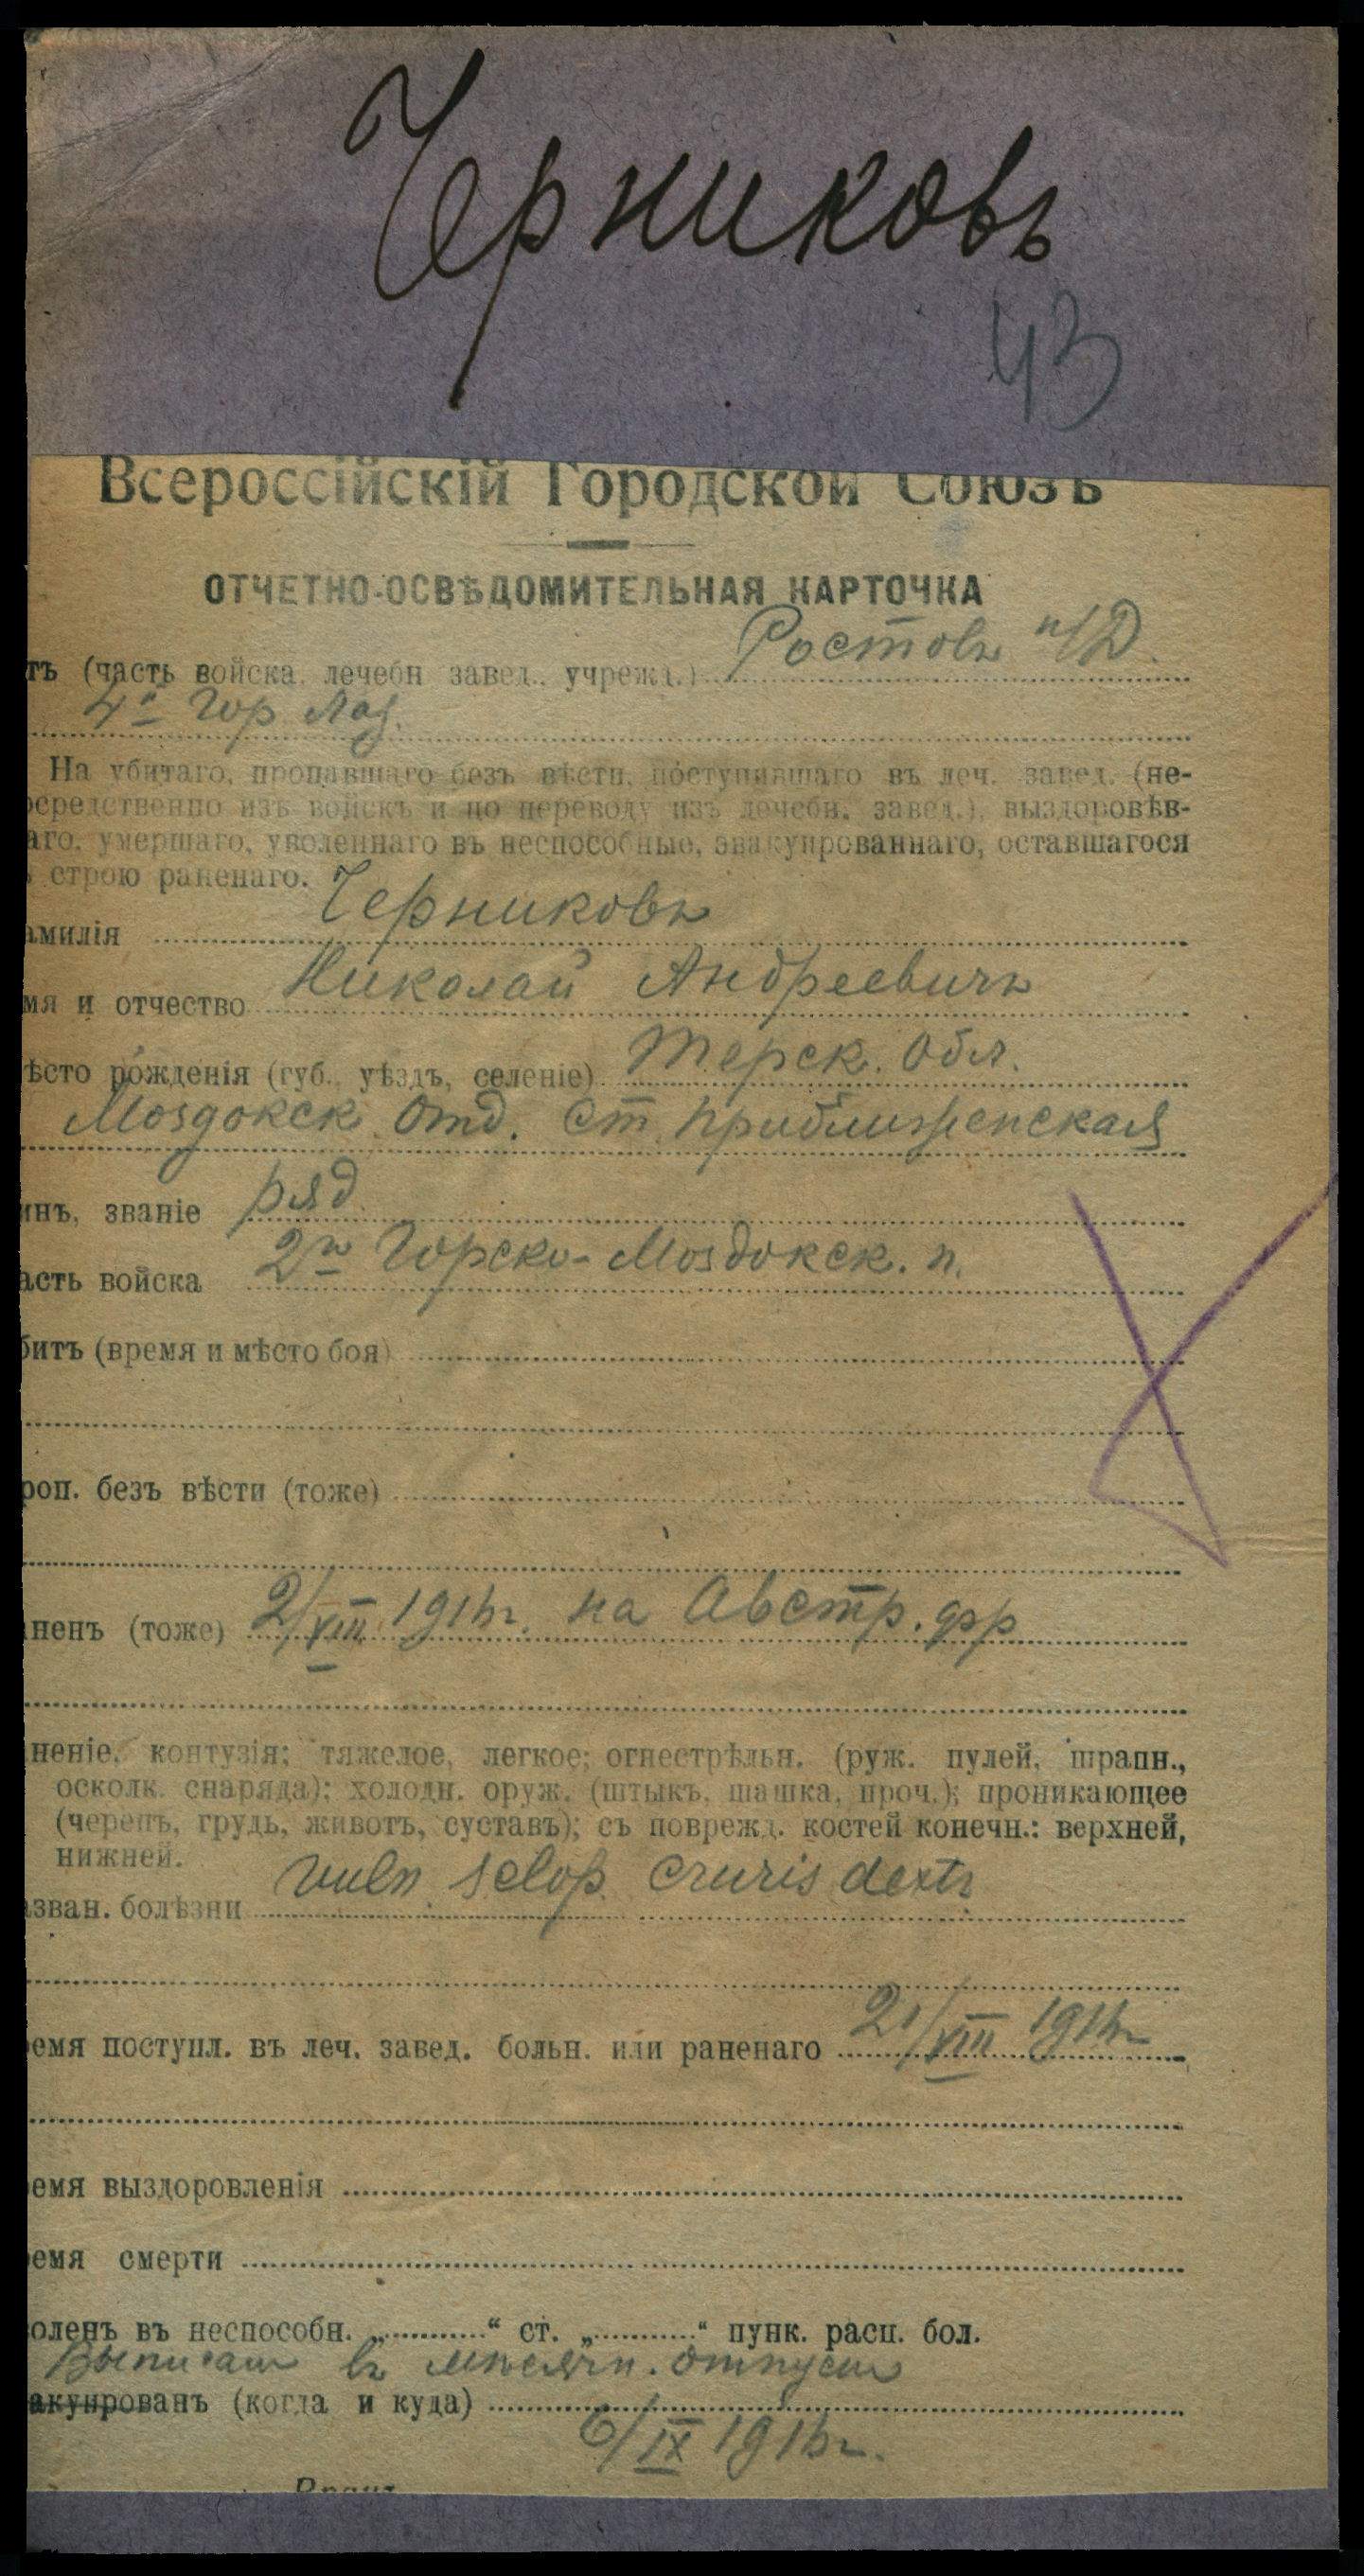 Черниковъ
43
Всероссійскій Городской Союзъ
ОТЧЕТНО-ОСВѢДОМИТЕЛЬНАЯ КАРТОЧКА
тъ (часть войска, лечебн завед., учрежд.) Ростовъ н/Д.
4й Гор Лаз.
На убитаго, пропавшаго безъ вѣсти, поступившаго въ леч. завед. (не-
осредственно изъ войскъ и по переводу изъ лечебн. завед.), выздоровѣв-
аго, умершаго, уволеннаго въ неспособные, эвакуированнаго, оставшагося
строю раненаго.
амилія Черниковъ
мя и отчество Николай Андреевичъ
ѣсто рожденія (губ., уѣздъ, селеніе) Терск. Обл.
Моздокск. Отд. ст. Приближенская
инъ, званіе ряд
асть войска 2й Горско-Моздокск. п.
битъ (время и мѣсто боя)
роп. безъ вѣсти (тоже)
ненъ (тоже) 2/VIII 1914г. на Австр. фр
неніе, контузія; тяжелое, легкое; огнестрѣльн. (руж. пулей, шрапн.,
осколк. снаряда); холодн. оруж. (штыкъ, шашка, проч.); проникающее
(черепъ, грудь, животъ, суставъ); съ поврежд. костей конечн.: верхней,
нижней.
азван. болѣзни Vuln sclop. cruris dextr
емя поступл. въ леч. завед. больн. или раненаго 21/VIII 1914г
емя выздоровленія
емя смерти
оленъ въ неспособн. „ “ ст. „ “ пунк. расп. бол.
Выписан въ мѣсячн. отпускъ
акуированъ (когда и куда)
6/IX 1914г.
Врачъ